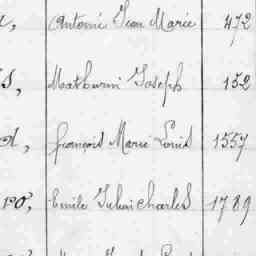 Antoine Jean Marie 472
s, Mathurin Joseph 152
François Marie Louis 1557
ro, Emile Julien Charles 1789